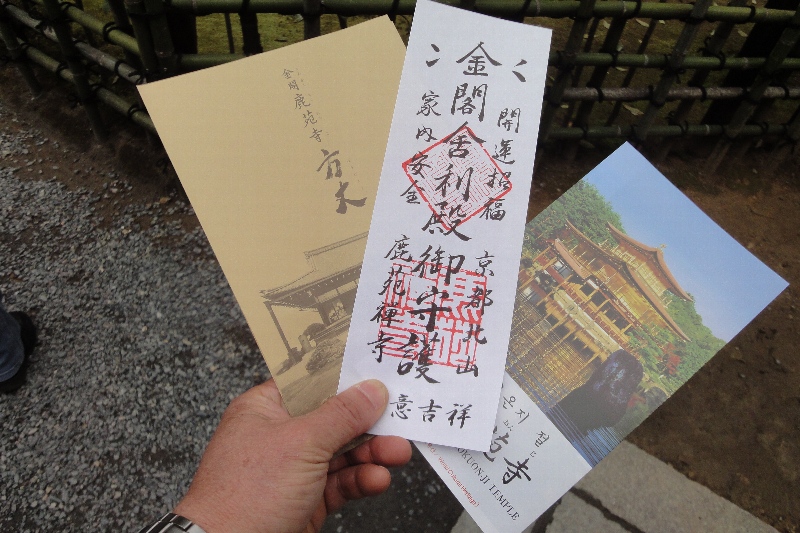 金閣鹿苑寺
方丈
開運招福
京都北山
金閣舎利殿御守護
家内安全
鹿苑禅寺
意吉祥
온지 절
苑寺
OKUON-JI TEMPLE